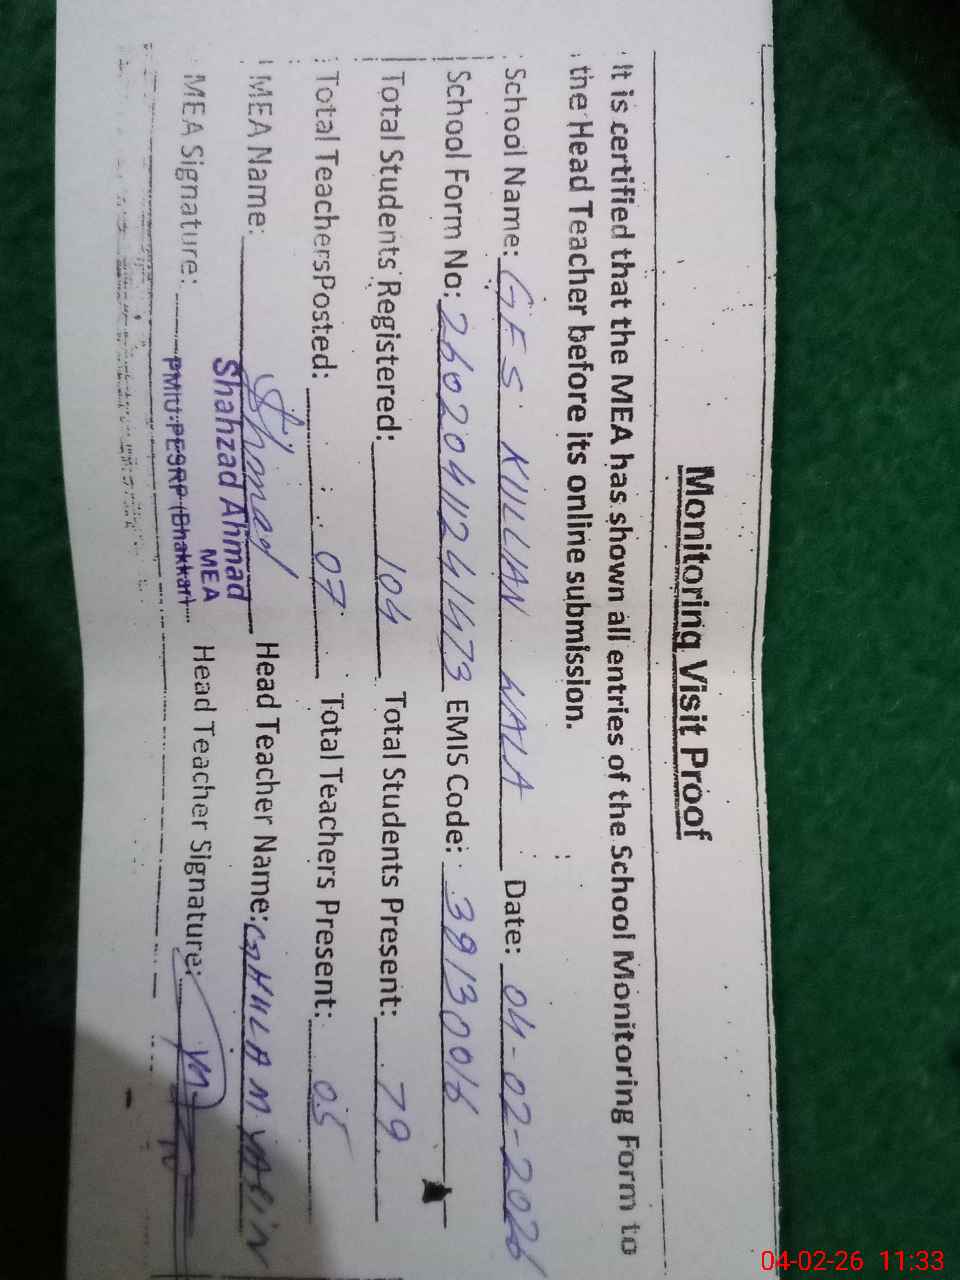 Monitoring Visit Proof
It is certified that the MEA has shown all entries of the School Monitoring Form to
the Head Teacher before its online submission.
School Name: GES KILLIAN WALA Date: 04-02-2026
School Form No: 2602041124 1473 EMIS Code: 39130016
Total Students Registered: 104 Total Students Present: 79
Total TeachersPosted: 07 Total Teachers Present: 05
MEA Name: Ahmad Head Teacher Name: GHULAM YASIN
Shahzad Ahmad
MEA
MEA Signature: PMIU-PESRP (Bhakkar) Head Teacher Signature:
04-02-26 11:33